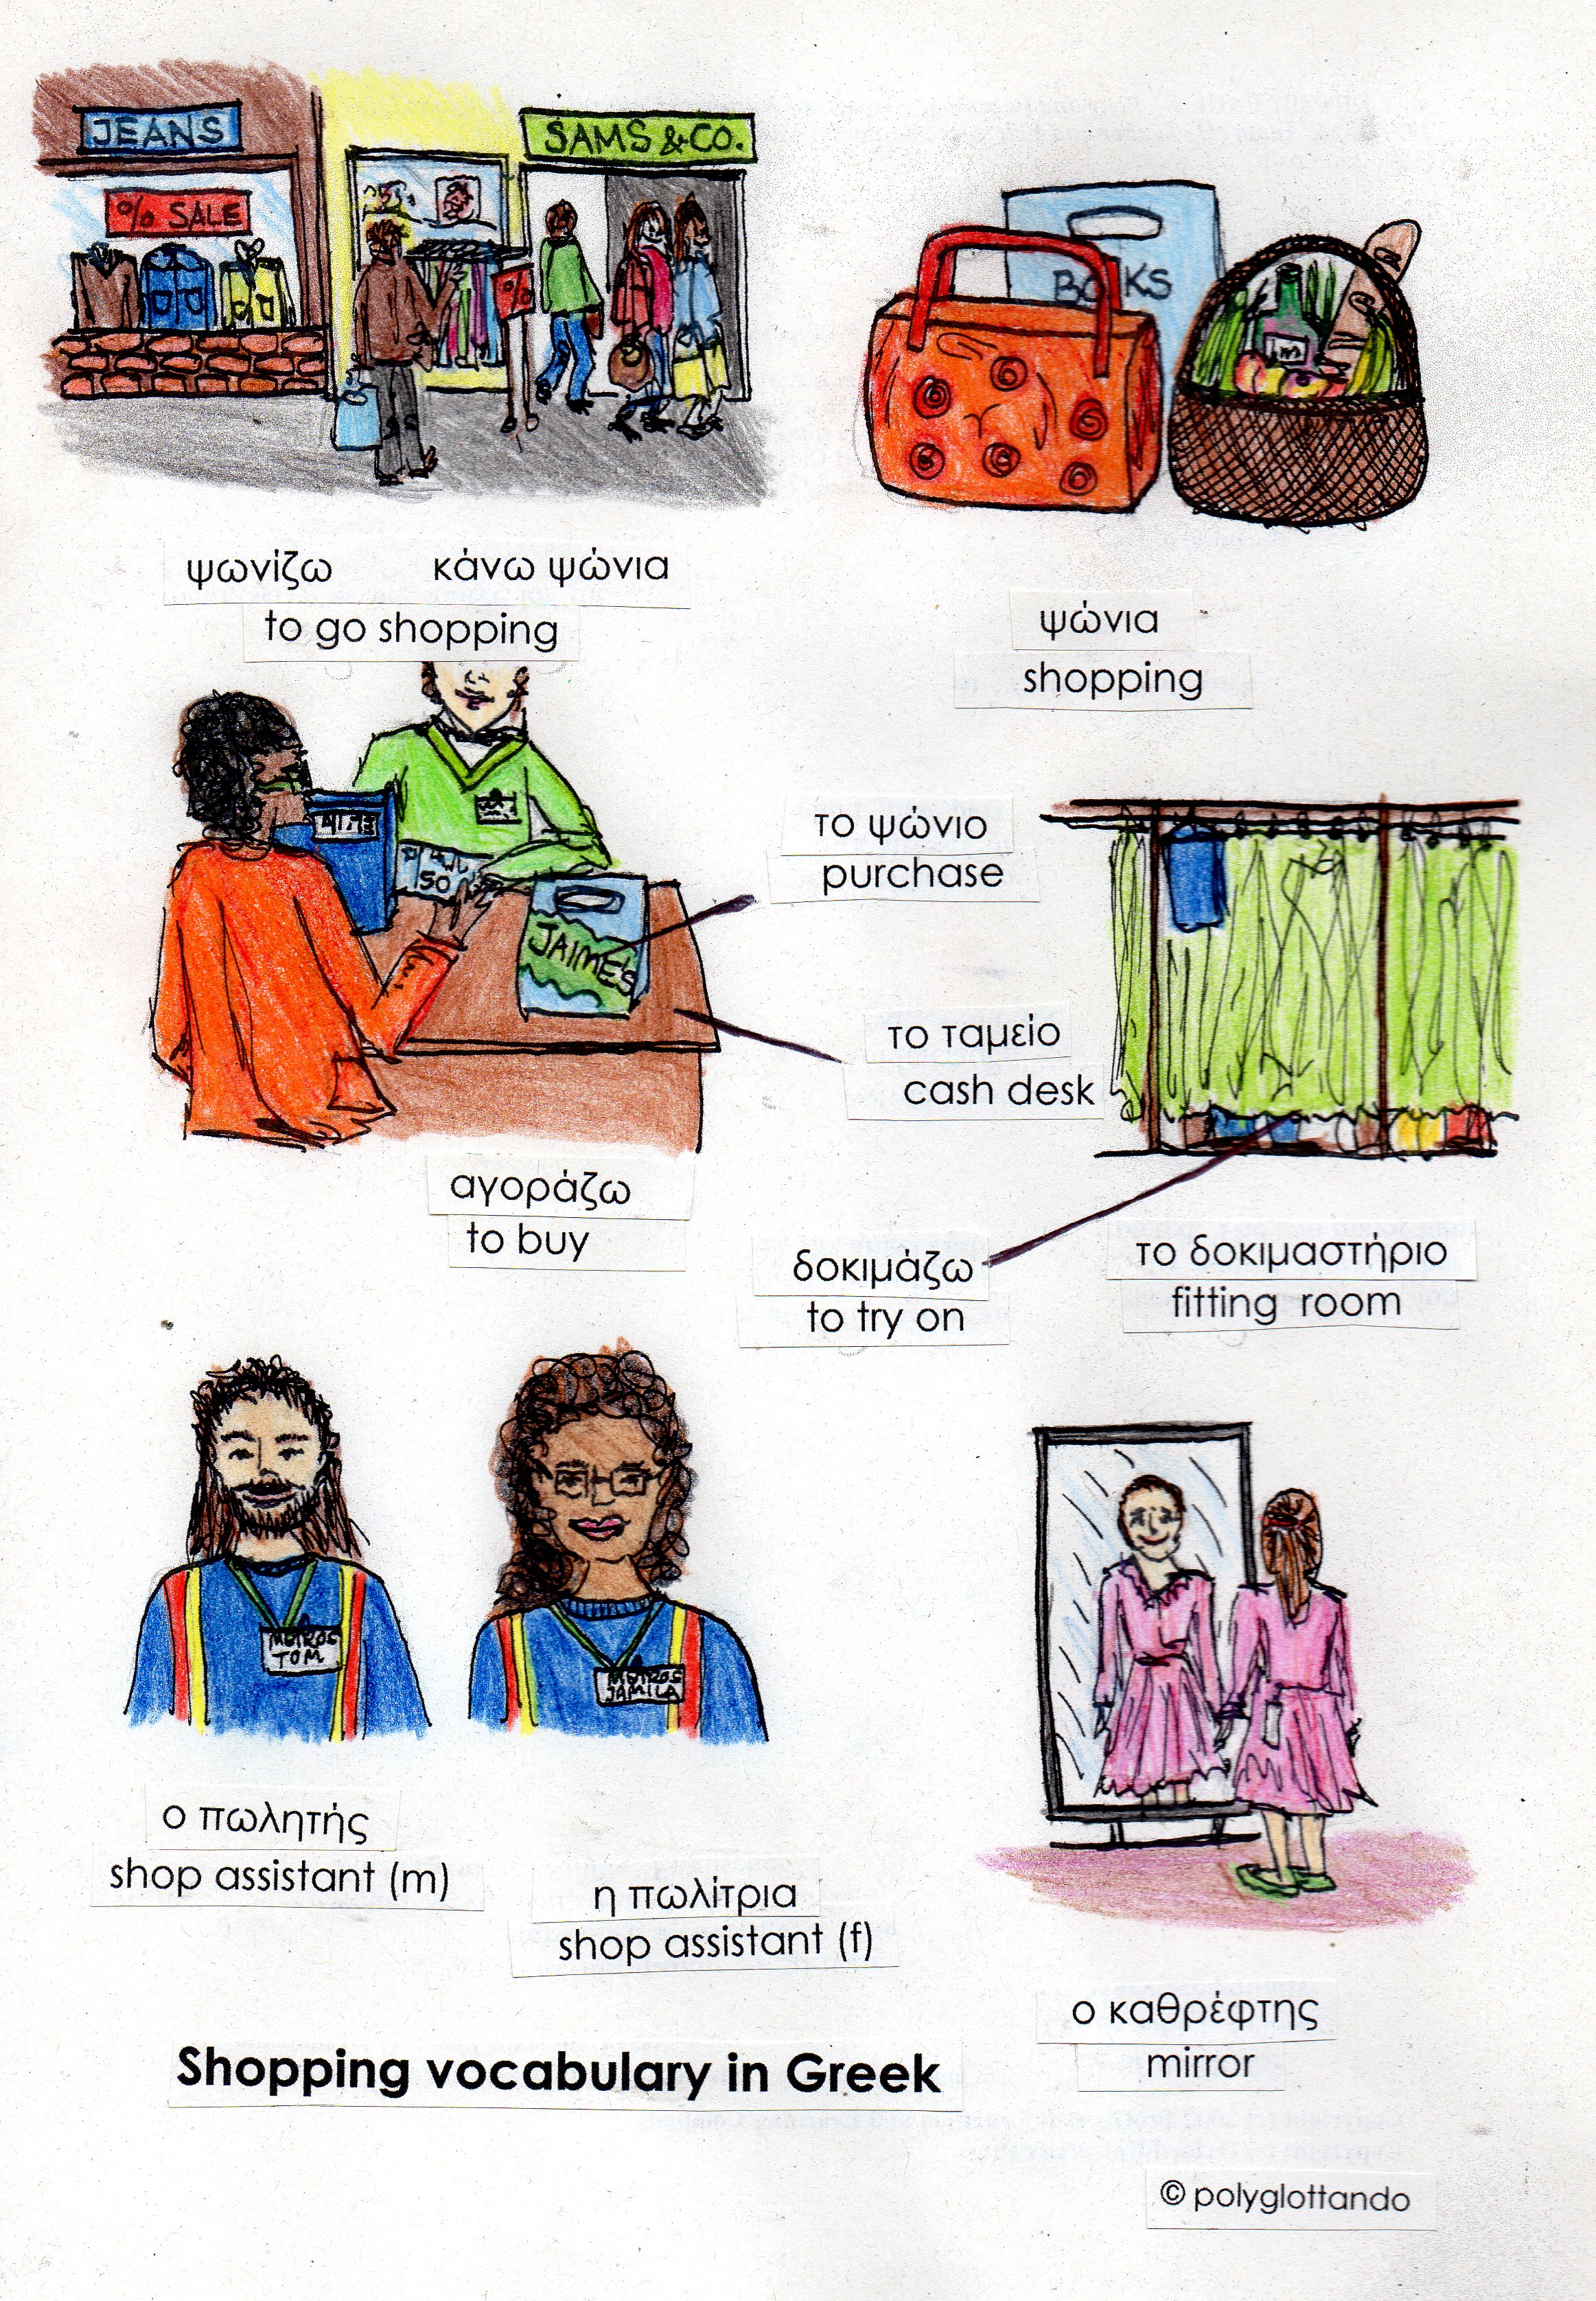 JEANS
% SALE
SAMS & CO.
%
BOOKS
ψωνίζω κάνω ψώνια
to go shopping
ψώνια
shopping
50
JAIME'S
το ψώνιο
purchase
το ταμείο
cash desk
αγοράζω
to buy
δοκιμάζω
to try on
το δοκιμαστήριο
fitting room
TOM
JAMILA
ο πωλητής
shop assistant (m)
η πωλίτρια
shop assistant (f)
ο καθρέφτης
mirror
Shopping vocabulary in Greek
© polyglottando